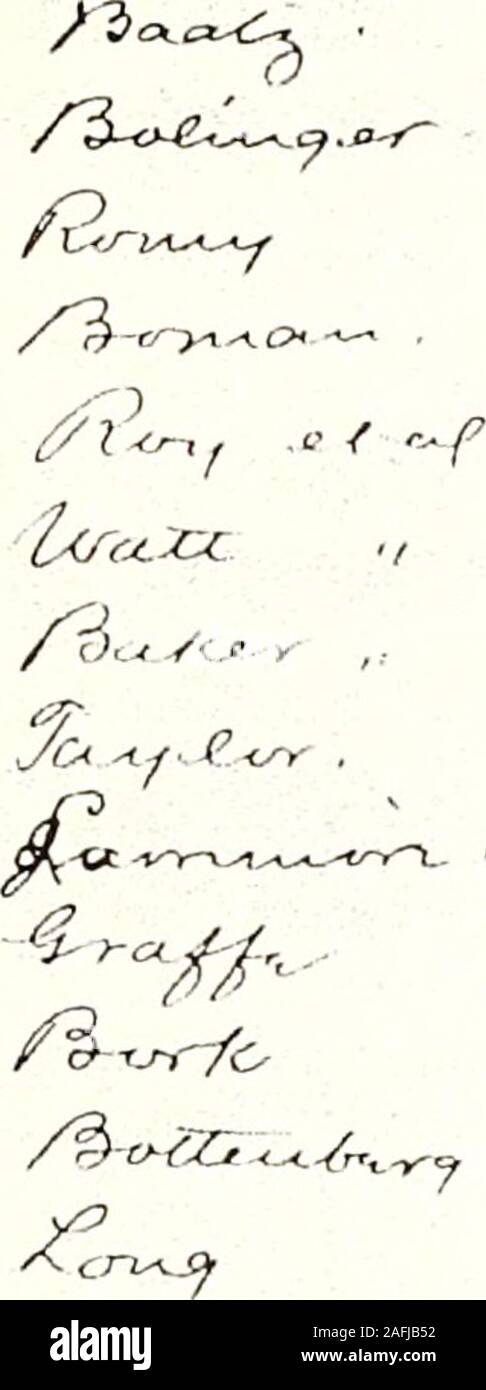 Baatz.
Bolinger
Romy
Boman.
Roy et al
Watt "
Baker "
Taylor.
Graffe
Burk
Bottenburg
Long
alamy
Image ID: 2AFJB52
www.alamy.com